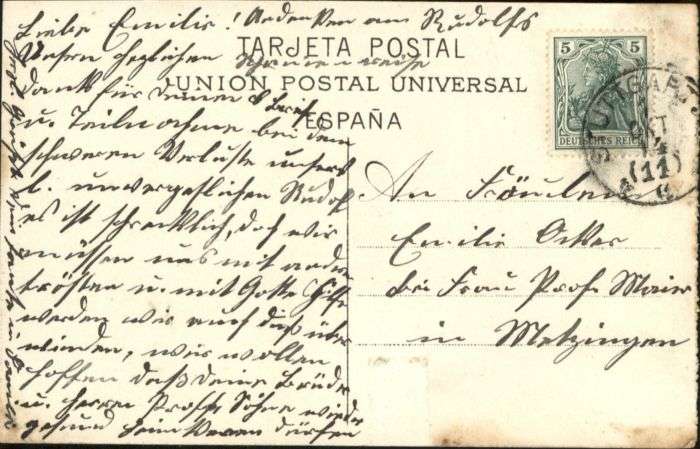 Liebe Emilie! Andenken an Rudolfs
Unsern herzlichen
Dank für deinen l. Brief
u. Teilnahme bei dem
schweren Verluste unsers
l. unvergeßlichen Rudolf
es ist schrecklich, doch wir
müssen uns mit andern
trösten u. mit Gottes Hilfe
werden wir auch dieß über
winden, wir wollen
hoffen daß deine Brüder
u. Herrn Profs Söhne wieder
gesund heimkehren dürfen
TARJETA POSTAL
UNION POSTAL UNIVERSAL
ESPAÑA
5 5
DEUTSCHES REICH
STUTTGART
OKT
14
(11)
An Fräulein
Emilie
bei Frau Prof. Maier
in Metzingen